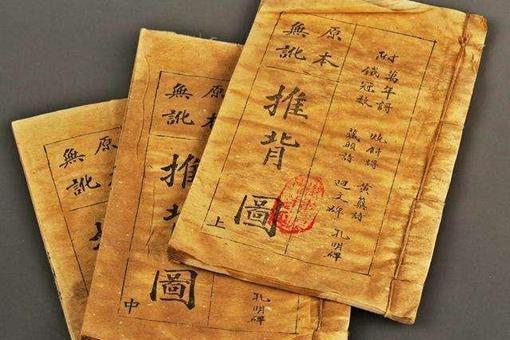 原本
無訛
附
萬年謌
鐵冠數
燒餅謌
黃蘗詩
孔明碑
推背圖
上
原本
無訛
推
圖
中
孔明碑
原本
無訛